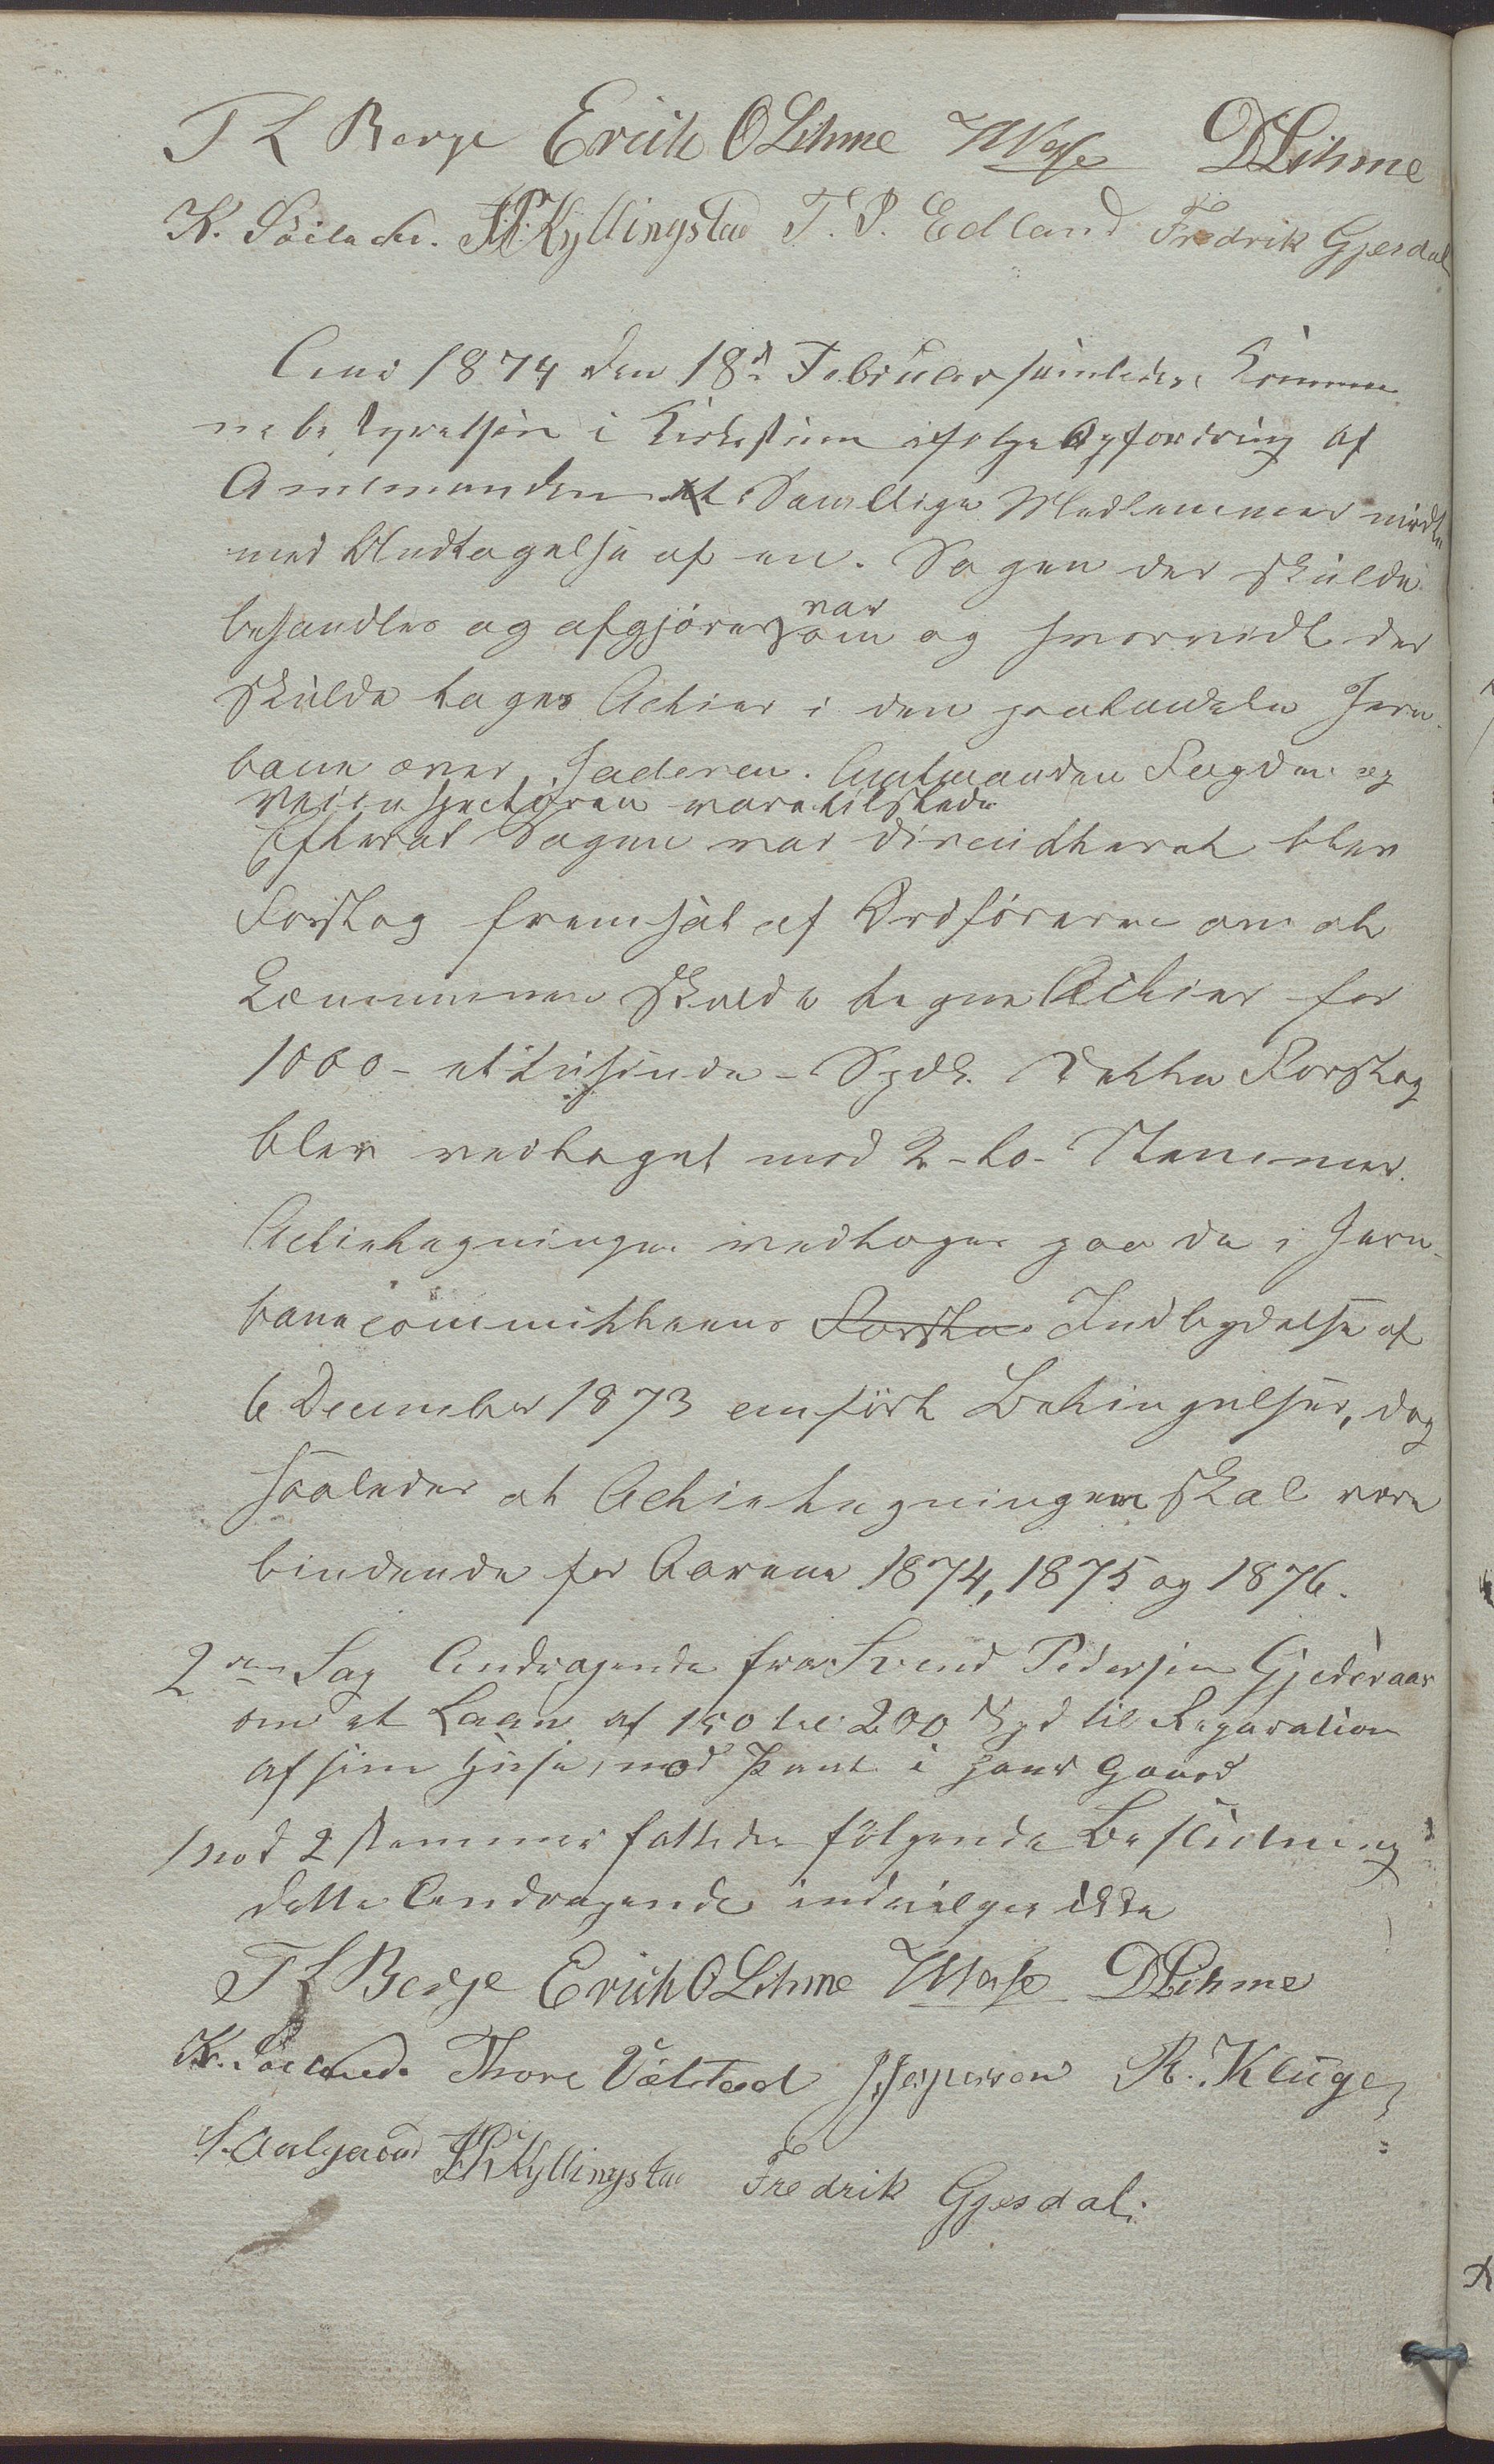 T L Berge Erich O Lihme DLihme
K. JPKyllingstad T. P. Edland Fredrik Gjesdal
Aar 1874 den 18d Februar samledes Kommu-
nebestyrelsen i Kirkestuen ifølge Opfordring af
Amtmanden Samtlige Medlemmer mødte
med Undtagelse af en. Sagen der skulde
behandles og afgjøres var om og hvorvidt der
skulde tages Actier i den paatænkte Jern-
bane over Jæderen. Amtmanden Fogden og
Veiinspectøren vare tilstede
Efterat Sagen var diventheret blev
Forslag fremsat af Ordføreren om at
Communen skulde tegne Actier for
1000 - et tusinde - Spdl. Dette Forslag
blev vedtaget mod 2 - to - Stemmer.
Actietegningen vedtages paa de i Jern-
banecommitteens Forsla Indbydelse af
6 December 1873 anført Betingelser, dog
saaledes at Actietegningen skal være
bindende for Aarene 1874, 1875 og 1876.
2den Sag Andragende fra Svend Pedersen Gjederaas
om et Laan af 150 til 200 Spd til Reparation
af sine Huse, mod Pant i hans Gaard
Mod 2 stemmer fattedes følgende Beslutning
dette Andragende indvilges ikke
T L Berge Erich O Lihme DLihme
K. Thore Vælstad J Jespersen R. Kluge
S. Aalgaard JPKyllingstad Fredrik Gjesdal.